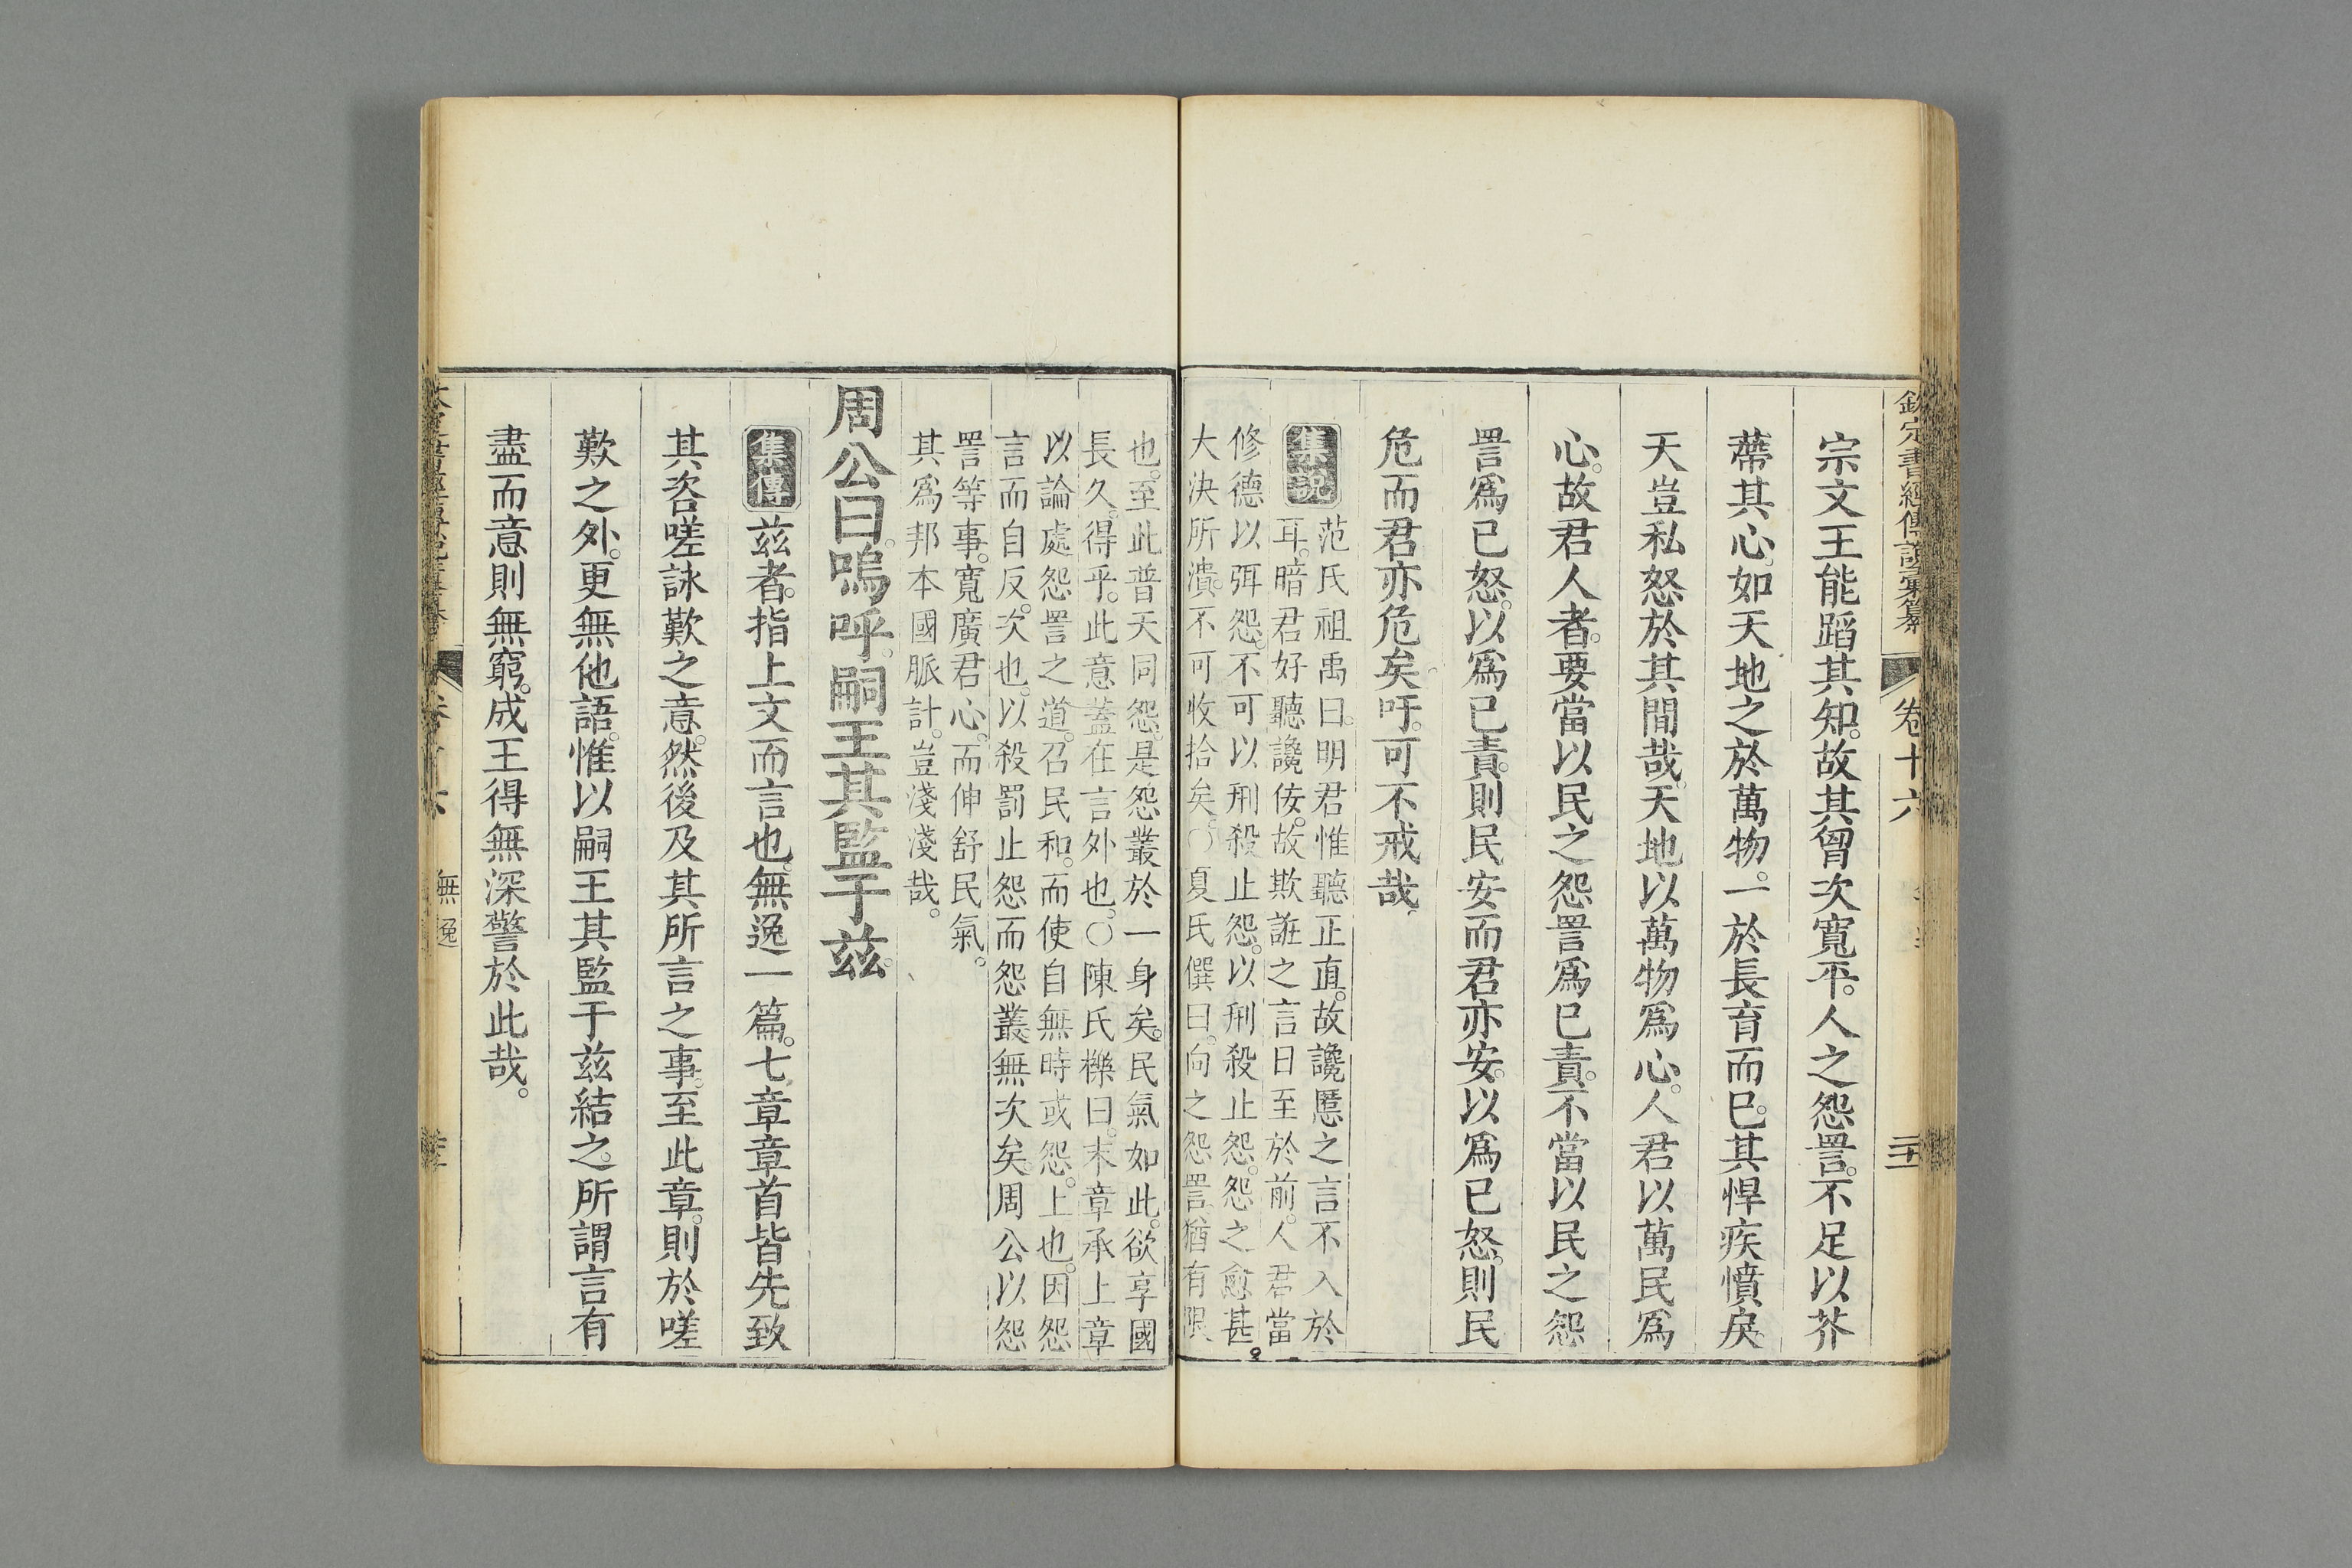 欽定書經傳說彙纂 卷十六
宗文王能蹈其知。故其胷次寬平。人之怨詈。不足以芥
蔕其心。如天地之於萬物。一於長育而巳。其悍疾憤戾。
天豈私怒於其閒哉。天地以萬物爲心。人君以萬民爲
心。故君人者。要當以民之怨詈爲巳責。不當以民之怨
詈爲已怒。以爲已責。則民安而君亦安。以爲已怒。則民
危而君亦危矣。吁。可不戒哉。
集說 范氏祖禹曰。明君惟聽正直。故讒慝之言不入於
耳。暗君好聽讒佞。故欺誑之言日至於前。人君當
修德以弭怨。不可以刑殺止怨。以刑殺止怨。怨之愈甚。
大決所潰。不可收拾矣。○夏氏僎曰。向之怨詈。猶有限
也。至此普天同怨。是怨叢於一身矣。民氣如此。欲享國
長久。得乎。此意蓋在言外也。○陳氏櫟曰。末章承上章
以論處怨詈之道。召民和。而使自無時或怨。上也。因怨
言而自反。次也。以殺罰止怨而怨叢無次矣。周公以怨
詈等事。寬廣君心。而伸舒民氣。
其爲邦本國脈計。豈淺淺哉。
周公曰。嗚呼。嗣王其監于茲。
集傳 茲者。指上文而言也。無逸一篇。七章章首皆先致
其咨嗟詠歎之意。然後及其所言之事。至此章。則於嗟
歎之外。更無他語。惟以嗣王其監于茲結之。所謂言有
盡而意則無窮。成王得無深警於此哉。
無逸